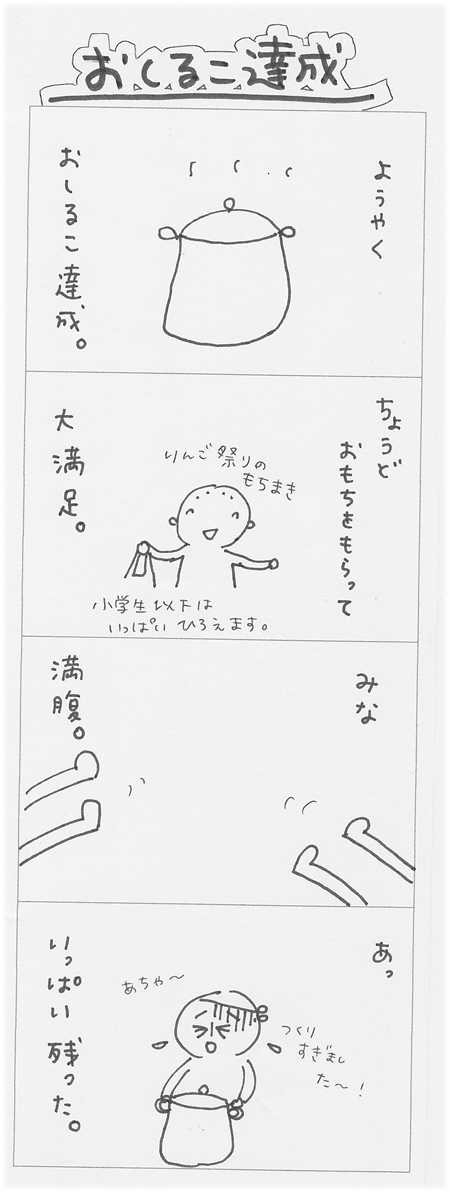 おしるこ達成
ようやく
おしるこ達成。
ちょうど
おもちをもらって
りんご祭りの
もちまき
小学生以下は
いっぱいひろえます。
大満足。
みな
満腹。
あっ
つくり
すぎまし
た〜!
あちゃ〜
いっぱい残った。